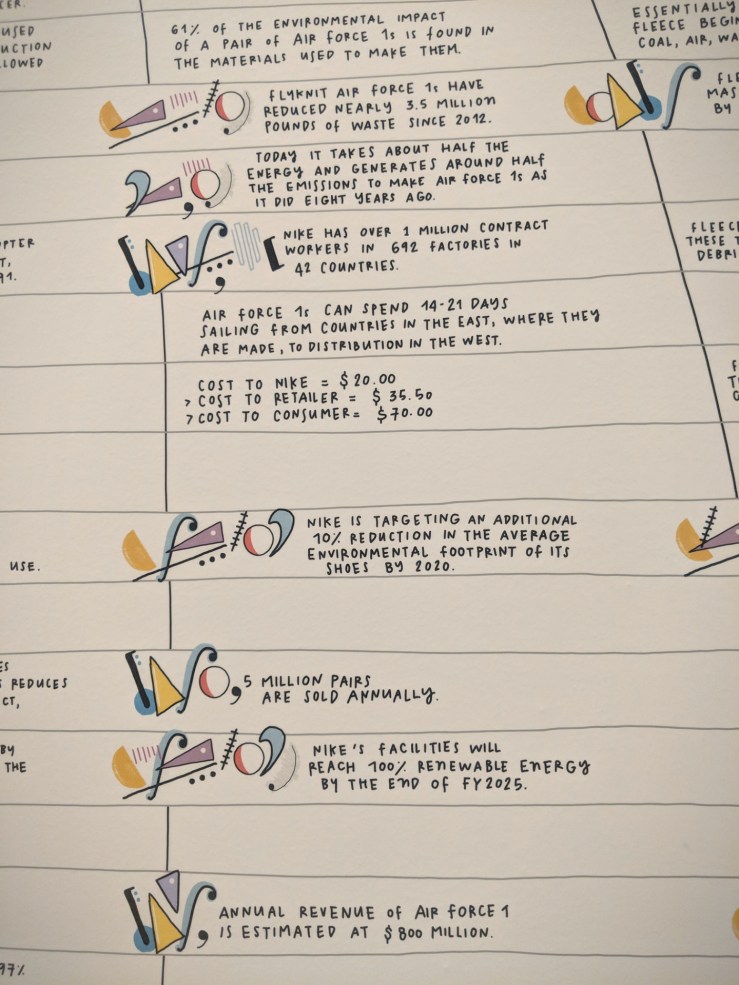 USED
UCTION
LOWED
61% OF THE ENVIRONMENTAL IMPACT
OF A PAIR OF AIR FORCE 1s IS FOUND IN
THE MATERIALS USED TO MAKE THEM.
ESSENTIALLY
FLEECE BEGIN
COAL, AIR, WA
FLYKNIT AIR FORCE 1s HAVE
REDUCED NEARLY 3.5 MILLION
POUNDS OF WASTE SINCE 2012.
FLE
MAS
BY
TODAY IT TAKES ABOUT HALF THE
ENERGY AND GENERATES AROUND HALF
THE EMISSIONS TO MAKE AIR FORCE 1s AS
IT DID EIGHT YEARS AGO.
OPTER
T,
91.
NIKE HAS OVER 1 MILLION CONTRACT
WORKERS IN 692 FACTORIES IN
42 COUNTRIES.
FLEEC
THESE T
DEBRI
AIR FORCE 1s CAN SPEND 14-21 DAYS
SAILING FROM COUNTRIES IN THE EAST, WHERE THEY
ARE MADE, TO DISTRIBUTION IN THE WEST.
COST TO NIKE = $20.00
> COST TO RETAILER = $ 35.50
> COST TO CONSUMER= $70.00
USE.
NIKE IS TARGETING AN ADDITIONAL
10% REDUCTION IN THE AVERAGE
ENVIRONMENTAL FOOTPRINT OF ITS
SHOES BY 2020.
ES
S REDUCES
CT,
5 MILLION PAIRS
ARE SOLD ANNUALLY.
BY
THE
NIKE'S FACILITIES WILL
REACH 100% RENEWABLE ENERGY
BY THE END OF FY2025.
ANNUAL REVENUE OF AIR FORCE 1
IS ESTIMATED AT $800 MILLION.
97%